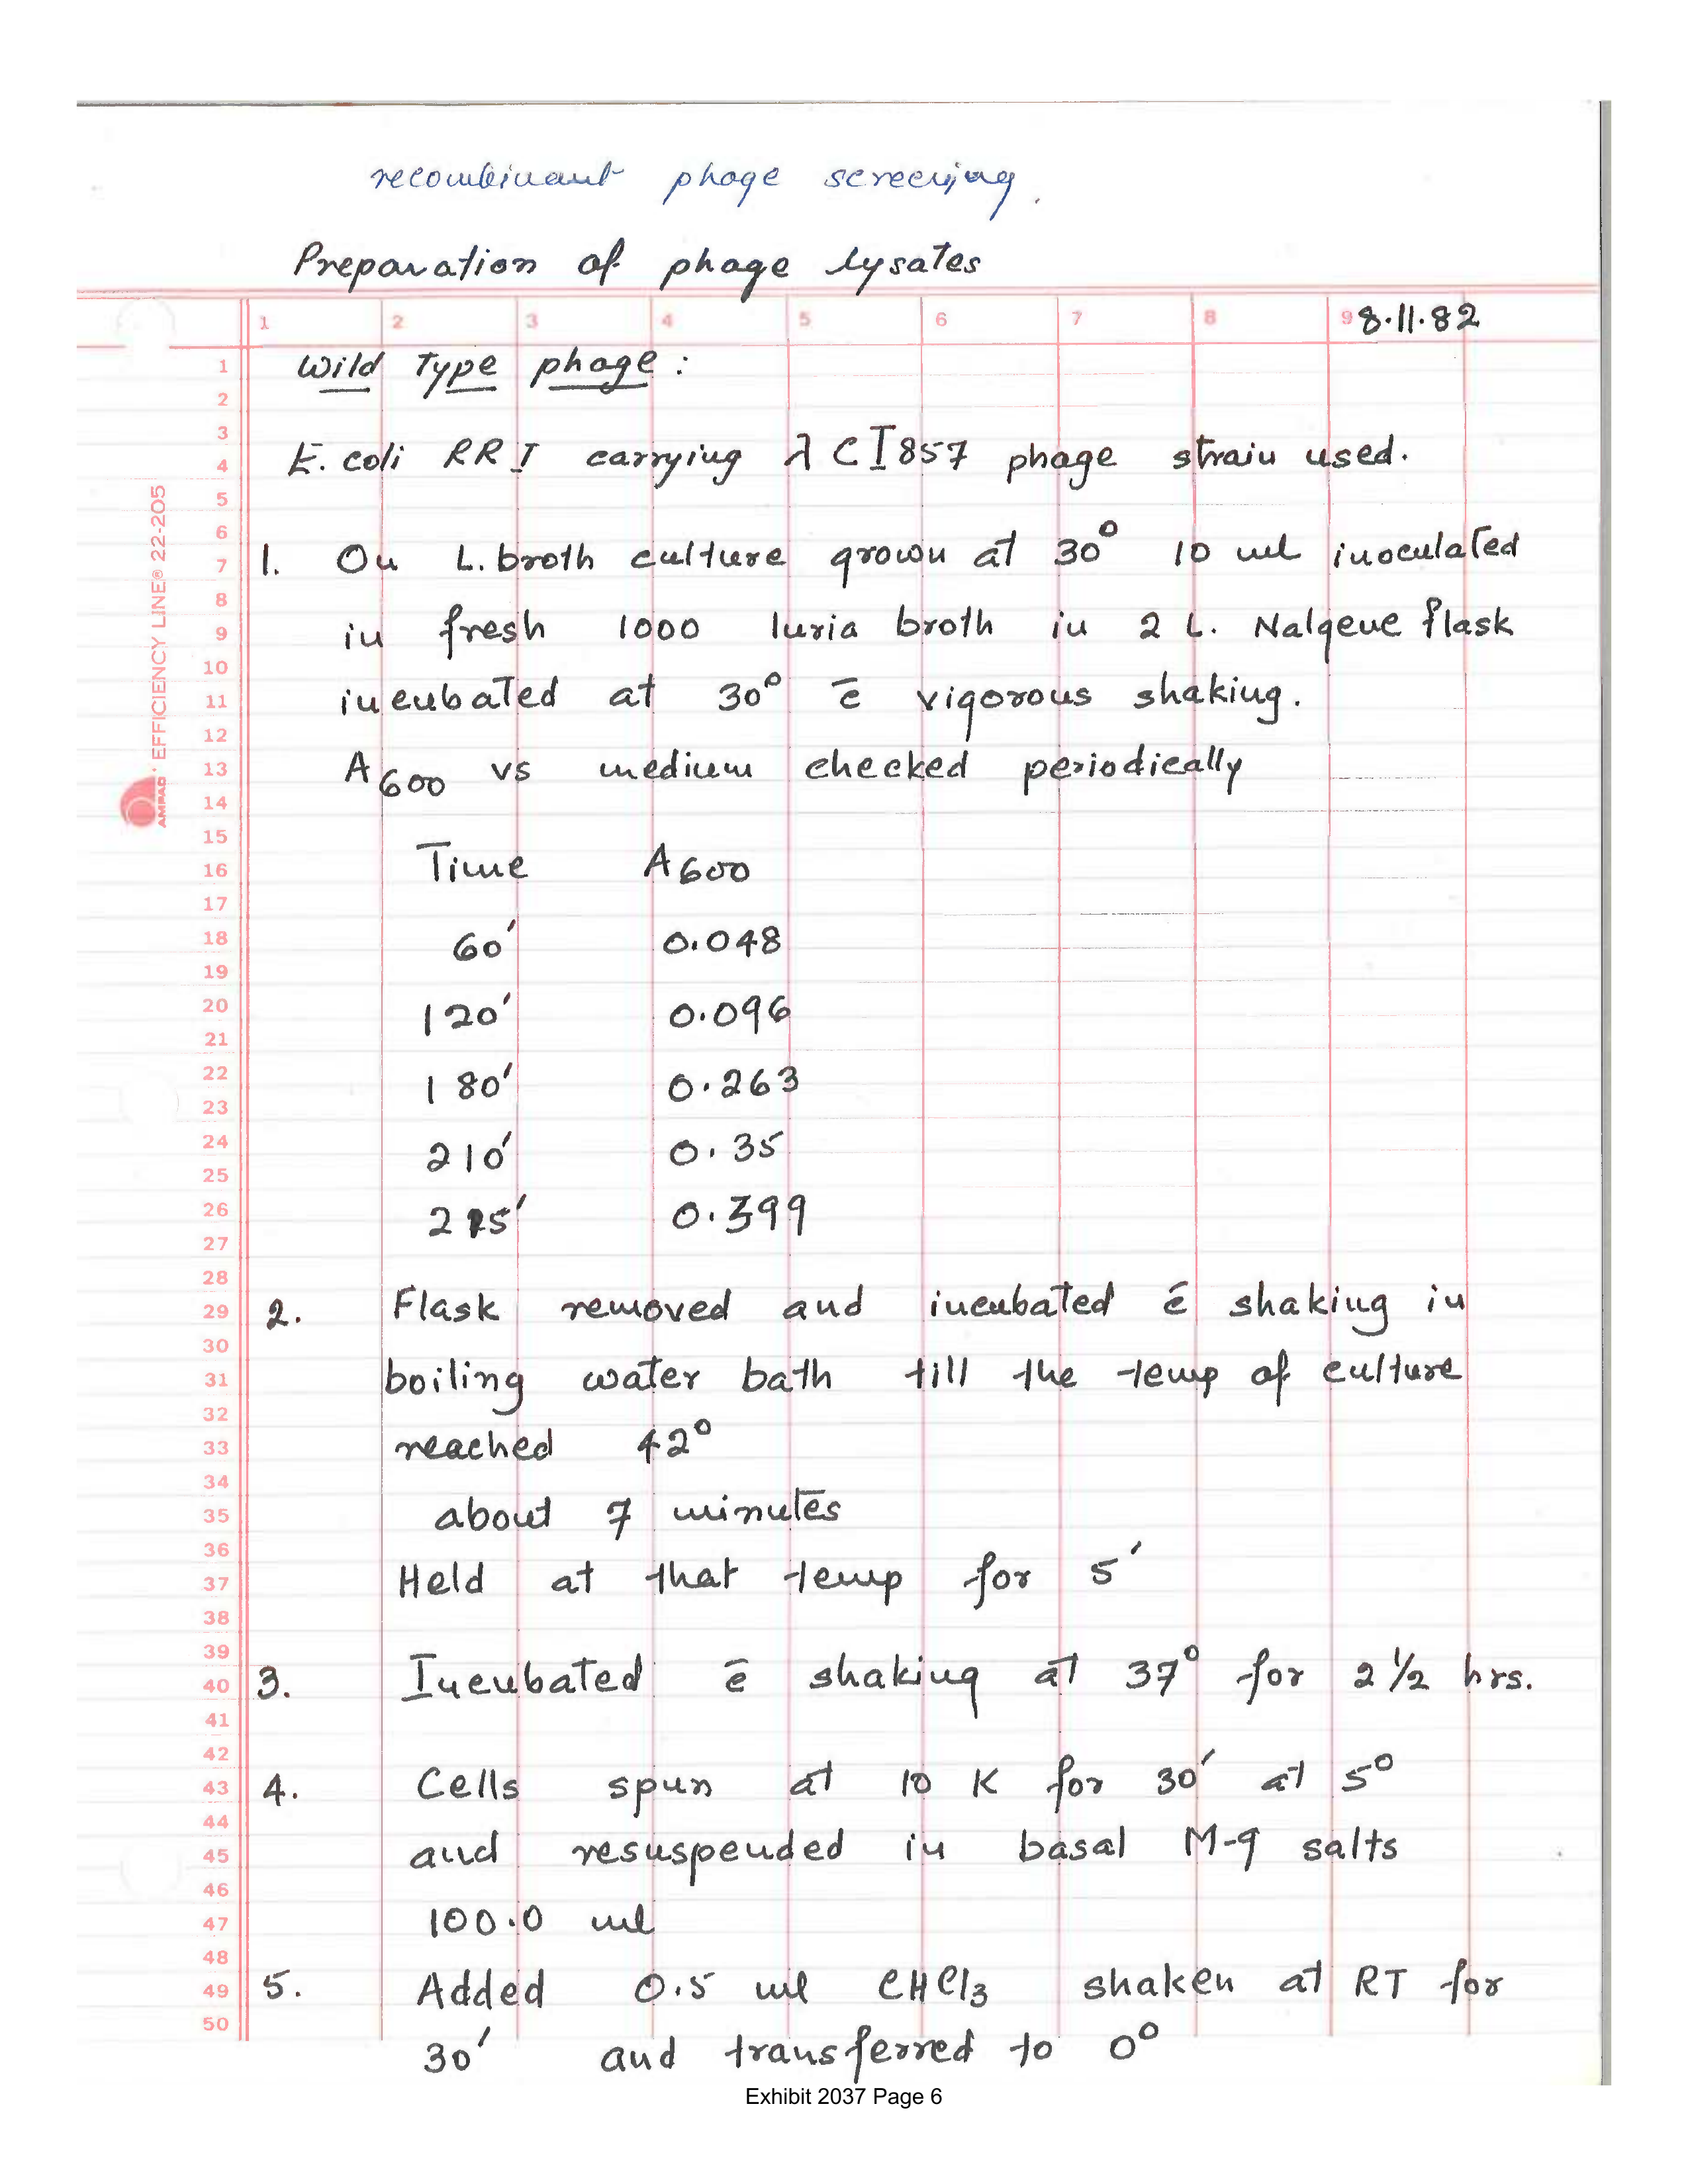 recombinant phage screening.
Preparation of phage lysates
1 2 3 4 5 6 7 8 9 8.11.82
Wild Type phage :
E. coli RRI carrying λ CI857 phage strain used.
1. On L. broth culture grown at 30° 10 ml inoculated
in fresh 1000 luria broth in 2 L. Nalgene flask
incubated at 30° c̄ vigorous shaking.
A600 vs medium checked periodically
Time A600
60' 0.048
120' 0.096
180' 0.263
210' 0.35
0.399
2. Flask removed and incubated c̄ shaking in
boiling water bath till the temp of culture
reached 42°
about 7 minutes
Held at that temp for 5'
3. Incubated c̄ shaking at 37° for 2 1/2 hrs.
4. Cells spun at 10 K for 30' at 5°
and resuspended in basal M-9 salts
100.0 ml
5. Added 0.5 ml CHCl3 shaken at RT for
30' and transferred to 0°
1
2
3
4
5
6
7
8
9
10
11
12
13
14
15
16
17
18
19
20
21
22
23
24
25
26
27
28
29
30
31
32
33
34
35
36
37
38
39
40
41
42
43
44
45
46
47
48
49
50
AMPAD · EFFICIENCY LINE® 22-205
Exhibit 2037 Page 6